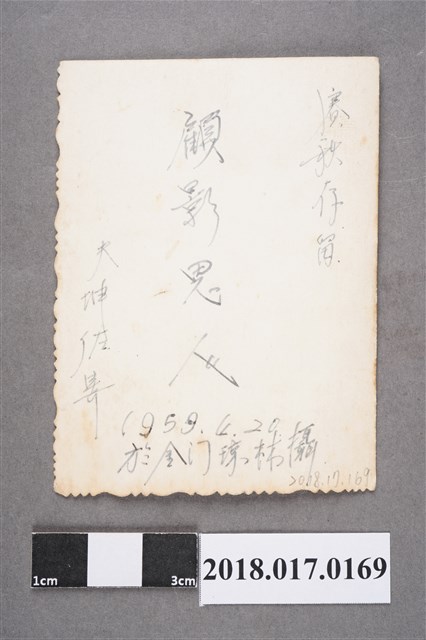 賡秋存留
顧影思人
夫坤任寄
1959.4.29
於金门瓊林攝
2018.17.169
1cm
3cm
2018.017.0169